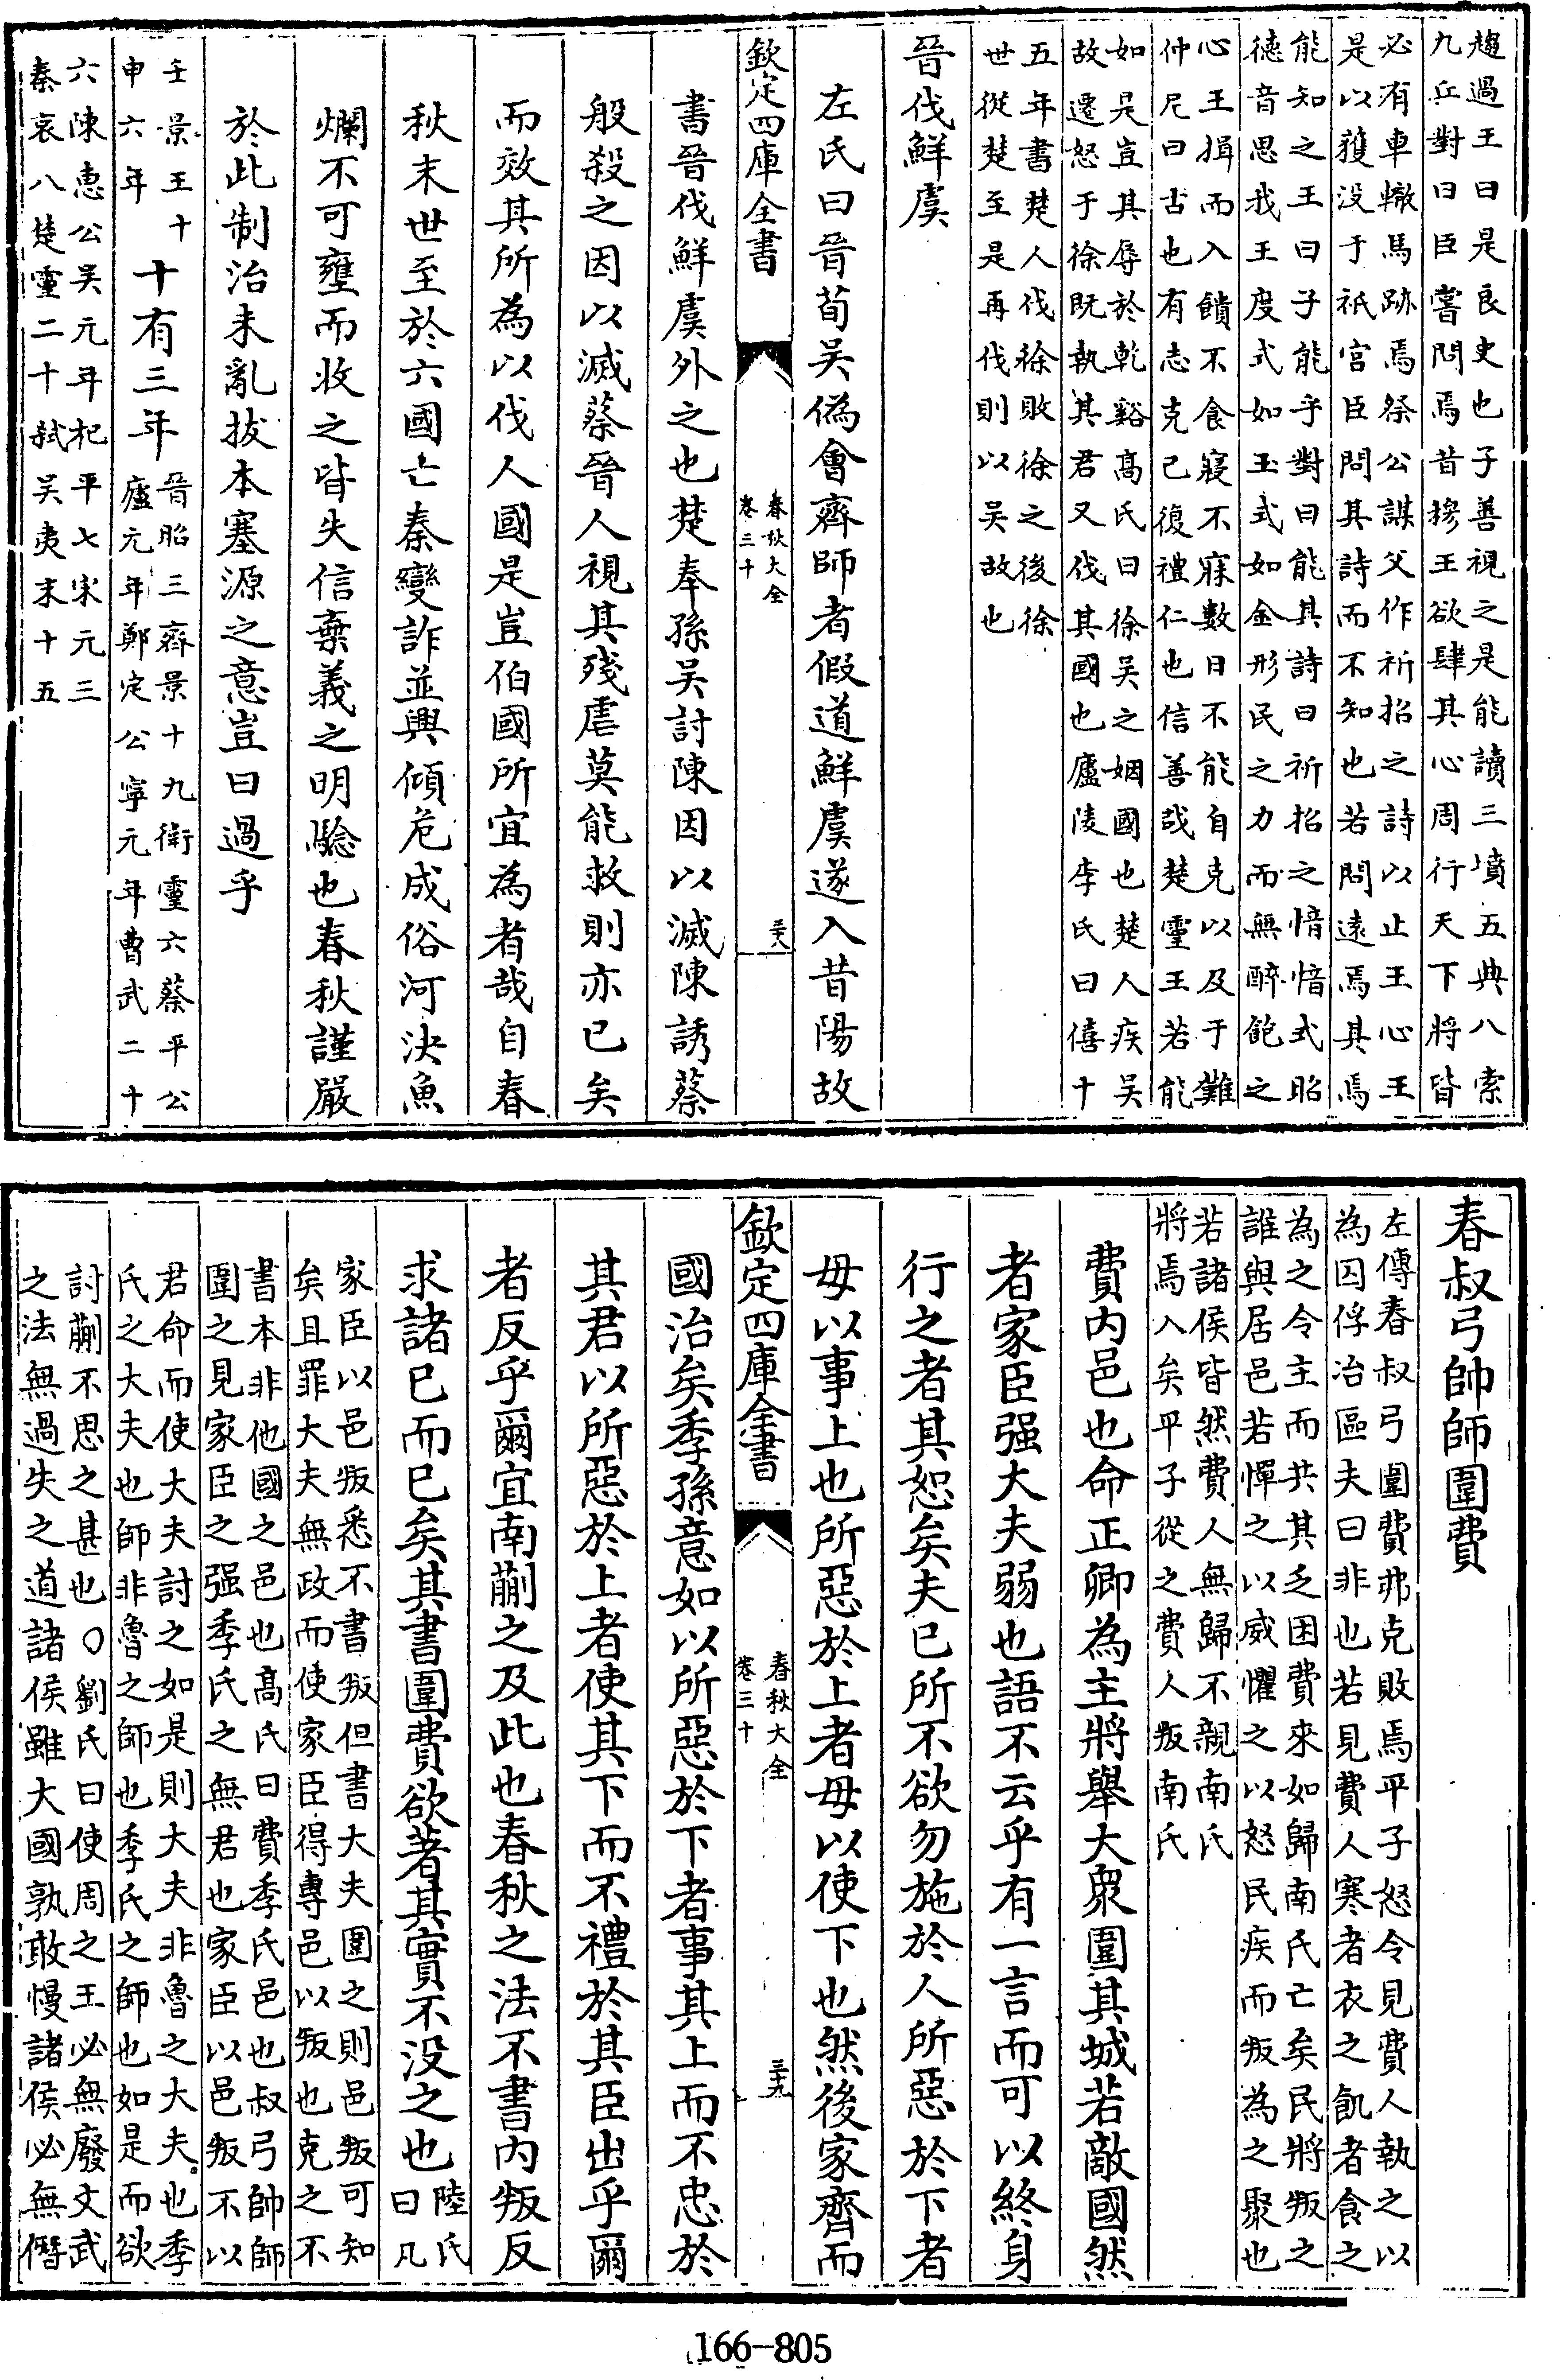 趨過王曰是良史也子善視之是能讀三墳五典八索
九丘對曰臣嘗問焉昔穆王欲肆其心周行天下將皆
必有車轍馬跡焉祭公謀父作祈招之詩以止王心王
是以獲没于祇宫臣問其詩而不知也若問遠焉其焉
能知之王曰子能乎對曰能其詩曰祈招之愔愔式昭
徳音思我王度式如玉式如金形民之力而無醉飽之
心王揖而入饋不食寢不寐數日不能自克以及于難
仲尼曰古也有志克己復禮仁也信善哉楚靈王若能
如是豈其辱於乾谿髙氏曰徐吴之姻國也楚人疾吴
故遷怒于徐既執其君又伐其國也廬陵李氏曰僖十
五年書楚人伐徐敗徐之後徐
世從楚至是再伐則以吴故也
晉伐鮮虞
左氏曰晉荀吴偽會齊師者假道鮮虞遂入昔陽故
欽定四庫全書
春秋大全
卷三十
三六
書晉伐鮮虞外之也楚奉孫吴討陳因以滅陳誘蔡
般殺之因以滅蔡晉人視其殘虐莫能救則亦已矣
而效其所為以伐人國是豈伯國所宜為者哉自春
秋末世至於六國亡秦變詐並興傾危成俗河決魚
爛不可壅而收之皆失信棄義之明驗也春秋謹嚴
於此制治未亂拔本塞源之意豈曰過乎
壬景王十
申六年
十有三年
晉昭三齊景十九衛靈六蔡平公
廬元年鄭定公寧元年曹武二十
六陳惠公吴元年杞平七宋元三
秦哀八楚靈二十弑吴夷末十五
春叔弓帥師圍費
左傳春叔弓圍費弗克敗焉平子怒令見費人執之以
為囚俘冶區夫曰非也若見費人寒者衣之飢者食之
為之令主而共其乏困費來如歸南氏亡矣民將叛之
誰與居邑若憚之以威懼之以怒民疾而叛為之聚也
若諸侯皆然費人無歸不親南氏
將焉入矣平子從之費人叛南氏
費内邑也命正卿為主將舉大衆圍其城若敵國然
者家臣强大夫弱也語不云乎有一言而可以終身
行之者其恕矣夫已所不欲勿施於人所惡於下者
毋以事上也所惡於上者毋以使下也然後家齊而
欽定四庫全書
春秋大全
卷三十
三九
國治矣季孫意如以所惡於下者事其上而不忠於
其君以所惡於上者使其下而不禮於其臣出乎爾
者反乎爾宜南蒯之及此也春秋之法不書内叛反
求諸已而已矣其書圍費欲著其實不没之也
陸氏
曰凡
家臣以邑叛悉不書叛但書大夫圍之則邑叛可知
矣且罪大夫無政而使家臣得專邑以叛也克之不
書本非他國之邑也髙氏曰費季氏邑也叔弓帥師
圍之見家臣之强季氏之無君也家臣以邑叛不以
君命而使大夫討之如是則大夫非魯之大夫也季
氏之大夫也師非魯之師也季氏之師也如是而欲
討蒯不思之甚也○劉氏曰使周之王必無廢文武
之法無過失之道諸侯雖大國孰敢慢諸侯必無僭
166-805